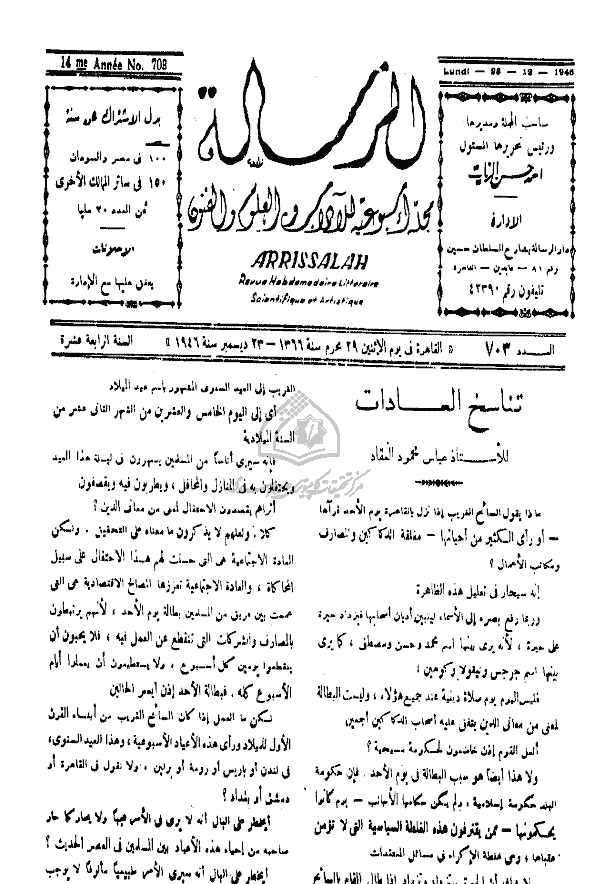 14 me Année No. 703
بدل الاشتراك عن سنة
١٠٠ فى مصر والسودان
١٥٠ فى سائر الممالك الأخرى
ثمن العدد ٢٠ مليا
الاعلانات
يتفق عليها مع الإدارة
الرسالة
مجلة أسبوعية للآداب والعلوم والفنون
ARRISSALAH
Revue Hebdomadaire Littéraire
Scientifique et Artistique
Lundi - 23 - 12 - 1946
صاحب المجلة ومديرها
ورئيس تحريرها المسئول
احمد حسن الزيات
الادارة
دار الرسالة بشارع السلطان حسين
رقم ٨١ - عابدين - القاهرة
تليفون رقم ٤٢٣٩٠
العــدد ٧٠٣ « القاهرة فى يوم الإثنين ٢٩ محرم سنة ١٣٦٦ - ٢٣ ديسمبر سنة ١٩٤٦ » السنة الرابعة عشرة
تناسخ العــادات
للأســتاذ عباس محمود العقاد
ما ذا يقول السائح الغريب إذا نزل بالقاهرة يوم الأحد فرآها
- أو رأى الكثير من أحيائها - مغلقة الدكاكين والمصارف
ومكاتب الأعمال ؟
إنه سيحار فى تعليل هذه الظاهرة
وربما رفع بصره إلى الأسماء ليتبين أديان أصحابها فيزداد حيرة
على حيرة ، لأنه يرى بينها اسم محمد وحسن ومصطفى ، كما يرى
بينها اسم جرجس ونيقولا وكوهين ؛
فليس اليوم يوم صلاة دينية عند جميع هؤلاء ، وليست البطالة
لمعنى من معانى الدين يتفق عليه أصحاب الدكاكين أجمعين
ألعل القوم إذن خاضعون لحكومة مسيحية ؟
ولا هذا أيضاً هو سبب البطالة فى يوم الأحد . فإن حكومة
البلد حكومة إسلامية ، ولم يكن حكامها الأجانب - يوم كانوا
يحكمونها - ممن يقترفون هذه الغلطة السياسية التى لا تؤمن
عقباها ، وهى غلطة الإكراه فى مسائل المعتقدات
القريب إلى العيد السنوى المشهور باسم عيد الميلاد
أى إلى اليوم الخامس والعشرين من الشهر الثانى عشر من
السنة الميلادية
فإنه سيرى أناساً من المسلمين يسهرون فى ليلة هذا العيد
ويحتفلون به فى المنازل والمحافل ، ويطربون فيه ويقصفون
أتراهم يقصدون الاحتفال لمعنى من معانى الدين ؟
كلا . ولعلهم لا يذكرون ما معناه على التحقيق . ولكن
العادة الاجتماعية هى التى حسنت لهم هذا الاحتفال على سبيل
المحاكاة ، والعادة الاجتماعية تعززها المصالح الاقتصادية هى التى
عممت بين فريق من المسلمين بطالة يوم الأحد ، لأنهم يرتبطون
بالمصارف والشركات التى تنقطع عن العمل فيه ، فلا يحبون أن
ينقطعوا يومين كل أسبوع ، ولا يستطيعون أن يعملوا أيام
الأسبوع كله . فبطالة الأحد إذن أيسر الحالين
لكن ما العمل إذا كان السائح الغريب من أبناء القرن
الأول للميلاد ورأى هذه الأعياد الأسبوعية ، وهذا العيد السنوى ،
فى لندن أو باريس أو رومة أو برلين . ولا نقول فى القاهرة أو
دمشق أو بغداد ؟
أيخطر على البال أنه لا يرى فى الأمر عجباً ولا يصاركما حار
صاحبه من إحياء هذه الأعياد بين المسلمين فى العصر الحديث ؟
أيخطر على البال أنه سيرى الأمر طبيعياً مألوفاً لا يوجب